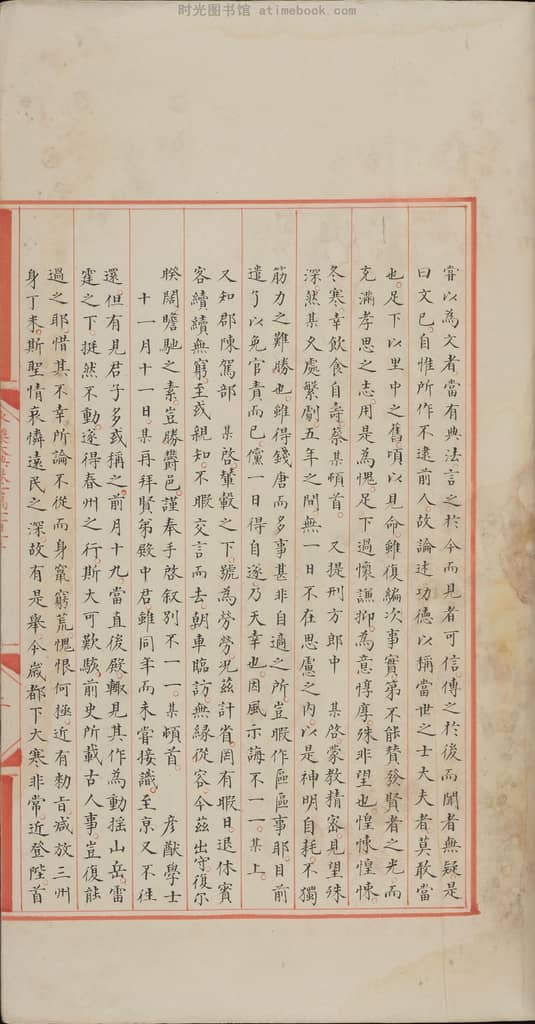 时光图书馆 atimebook.com
甞以為文者當有典法言之於今而見者可信傳之於後而聞者無疑是
曰文已自惟所作不逮前人故論述功德以稱當世之士大夫者莫敢當
也足下以里中之舊頃以見命雖復編次事實第不能賛發賢者之光而
充滿孝思之志用是為愧足下過懷謙抑為意惇厚殊非望也惶悚惶悚
冬寒幸飲食自壽蔡某頓首 又提刑方郎中 某啓蒙教精密見望殊
深然某久處繁劇五年之間無一日不在思慮之内以是神明自耗不獨
筋力之難勝也雖得錢唐而多事甚非自適之所豈暇作區區事耶目前
遣了以免官責而已儻一日得自遂乃天幸也因風示誨不一一某上
又知郡陳駕部 某啓輦轂之下號為勞勞况兹計省罔有暇日退休賓
客續續無窮至或親知不暇交言而去朝車臨訪無緣從容今兹出守復尔
暌闊瞻馳之素豈勝欝邑謹奉手啓叙别不一一某頓首 彦猷學士
十一月十一日某再拜賢弟殿中君雖同年而未甞接識至京又不徃
還但有見君子多或稱之前月十九當直後殿輙見其作為動摇山岳雷
霆之下挺然不動遂得春州之行斯大可歎駭前史所載古人事豈復能
過之耶惜其不幸所論不從而身竄窮荒愧恨何極近有勑旨减放三州
身丁米斯聖情哀憐遠民之深故有是舉今歲都下大寒非常近登陛首